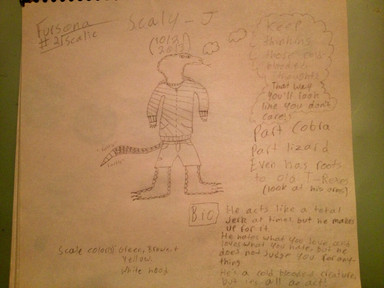 Fursona
#2: Scalie
Scaly-J
Keep
thinking
those
thoughts
That way
You'll look
like you don't
care!
Part Cobra
Part lizard
Even has roots
to old T-Rexes
(look at his arms)
BIO
He acts like a total
Jerk at times but he makes
up for it.
He hates what you love, and
loves what you hate, but he
does not judge you for any-
thing
He's a cold blooded creature,
but it's all an act!
Scale colors: Green, Brown +
Yellow